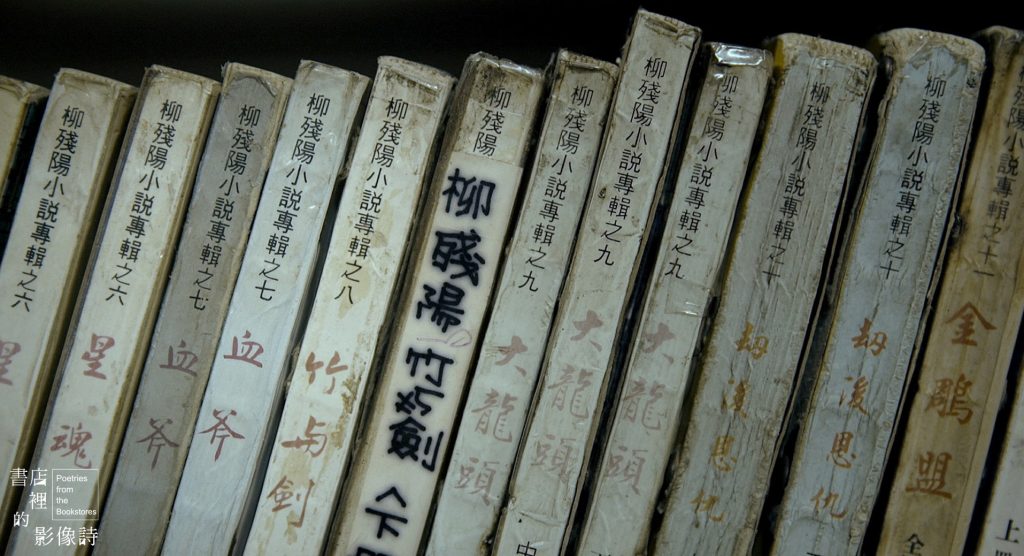 柳殘陽小說專輯之六
星
柳殘陽小說專輯之六
星魂
柳殘陽小說專輯之七
血斧
柳殘陽小說專輯之七
血斧
柳殘陽小說專輯之八
竹与劍
柳殘陽
柳殘陽
竹与劍
柳殘陽小說專輯之九
大龍頭
柳殘陽小說專輯之九
大龍頭
中
柳殘陽小說專輯之九
大龍頭
柳殘陽小說專輯之十
劫後恩仇
柳殘陽小說專輯之十
劫後恩仇
殘陽小說專輯之十一
金鵰盟
全
上
書店
裡
的
影像詩
Poetries
from
the
Bookstores